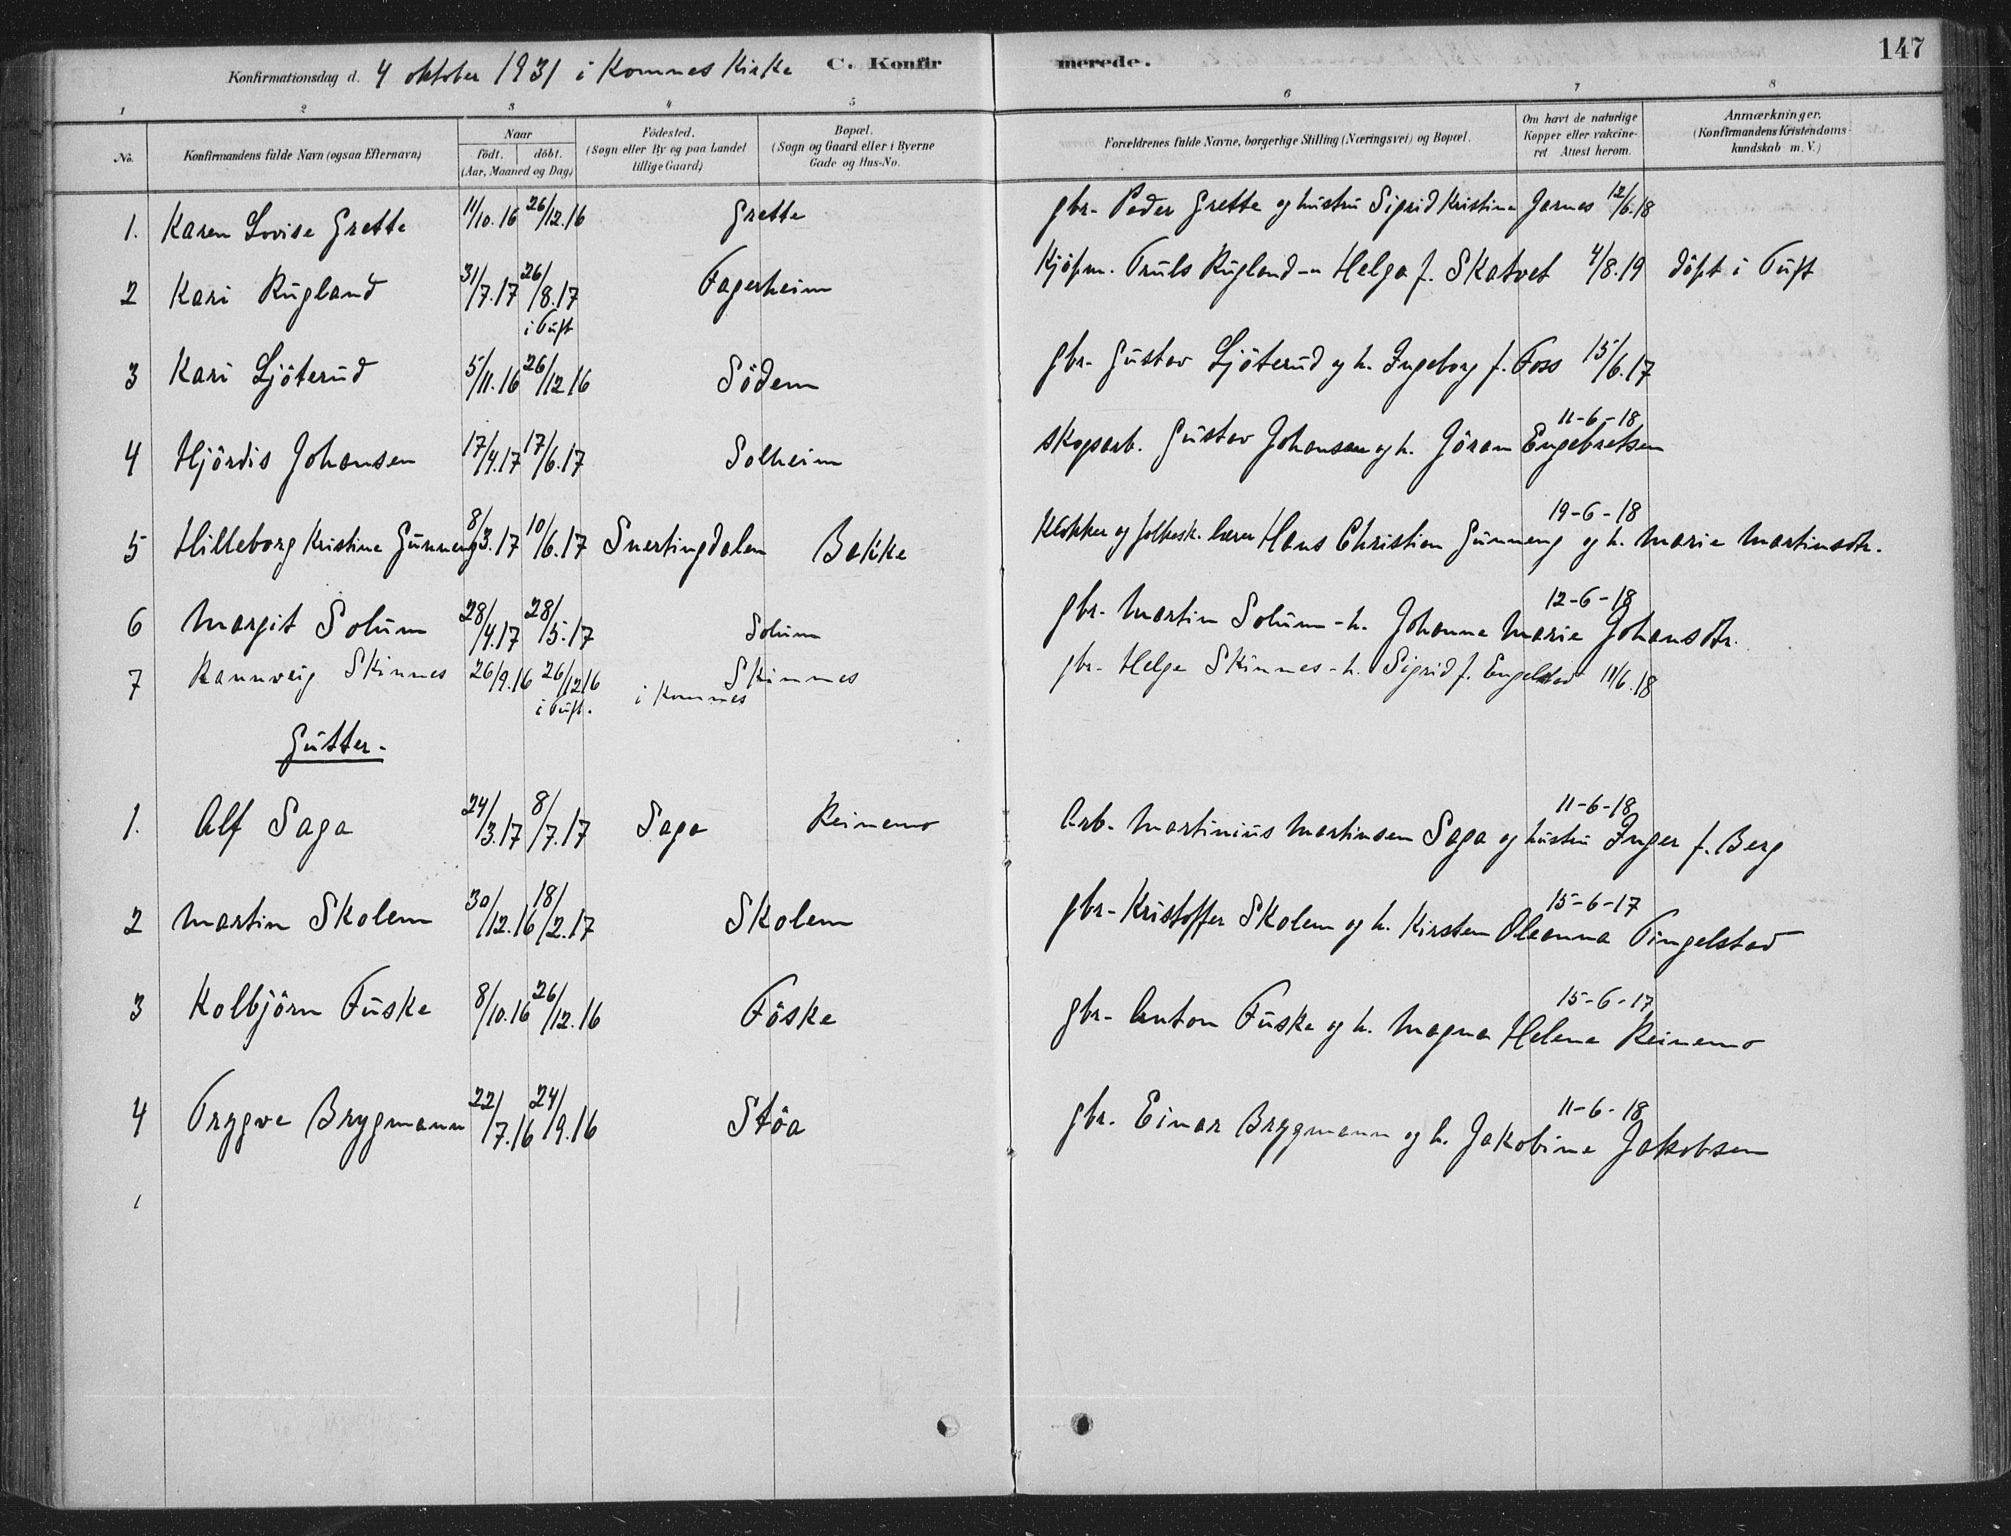 Konfirmationsdag d. 4 oktober 1931 i Komnes Kirke C. Konfirmerede. 147
1 2 3 4 5 6 7 8
No. Konfirmandens fulde Navn (ogsaa Efternavn) Naar födt. döbt. (Aar, Maaned og Dag) Födested. (Sogn eller By og paa Landet tillige Gaard) Bopæl. (Sogn og Gaard eller i Byerne Gade og Hus-No. Forældrenes fulde Navne, borgerlige Stilling (Næringsvei) og Bopæl. Om havt de naturlige Kopper eller vakcineret Attest herom. Anmærkninger. (Konfirmandens Kristendomskundskab m. V.)
1. Karen Lovise Grette 11/10.16 26/12.16 Grette gbr. Peder Grette og hustru Sigrid Kristine Jarnes 12/6.18
2 Kari Rugland 31/7.17 26/8.17 i Tuft Fagerheim Kjøpm. Truls Rugland - " Helga f. Skatvet 4/8.19 döpt i Tuft
3 Kari Ljöterud 5/11.16 26/12.16 Södem gbr. Gustav Ljöterud og h. Ingeborg f. Foss 15/6.17
4 Hjördis Johansen 17/4.17 17/6.17 Solheim skogsarb. Gustav Johansen og h. Jöran Engebretsen 11-6-18
5 Hilleborg Kristine Gunneng 8/3.17 10/6.17 Snertingdalen Bakke Klokker og folkesk. lærer Hans Christian Gunneng og h. Marie Martinsdtr. 19-6-18
6 Margit Solum 28/4.17 28/5.17 Solum gbr. Martin Solum - h. Johanne Marie Johansdtr. 12-6-18
7 Rannveig Skinnes 26/9.16 26/12.16 i Tuft. i Komnes Skinnes gbr. Helge Skinnes - h. Sigrid f. Engelstad 11/6.18
Gutter.
1. Alf Saga 24/3.17 8/7.17 Saga Reinemo Arb. Martinius Martinsen Saga og hustru Inger f. Berg 11-6-18
2 Martin Skolem 30/12.16 18/2.17 Skolem gbr. Kristoffer Skolem og h. Kirsten Oleanna Tingelstad 15-6-17
3 Kolbjörn Fuske 8/10.16 26/12.16 Föske gbr. Anton Fuske og h. Magna Helene Reinemo 15-6-17
4 Trygve Brygmann 22/7.16 24/9.16 Stöa gbr. Einar Brygmann og h. Jakobine Jakobsen 11-6-18